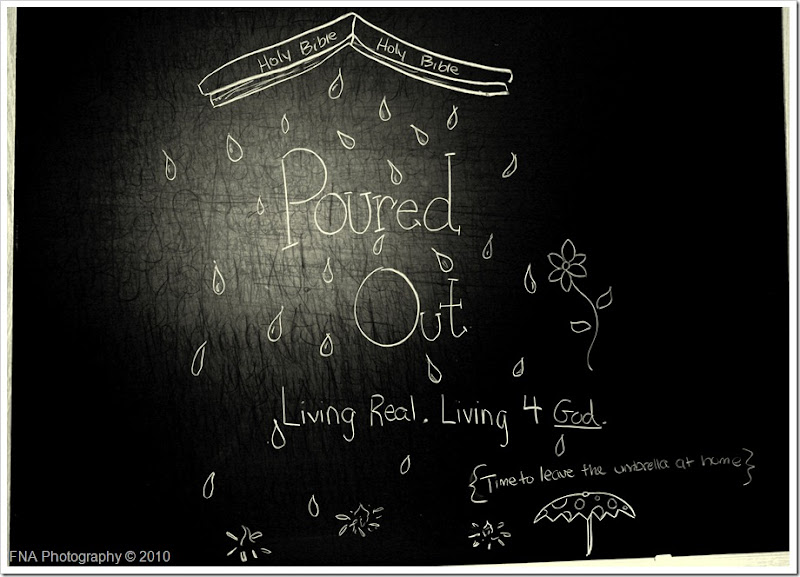 Holy Bible Holy Bible
Poured
Out
Living Real. Living 4 God.
{Time to leave the umbrella at home}
FNA Photography © 2010